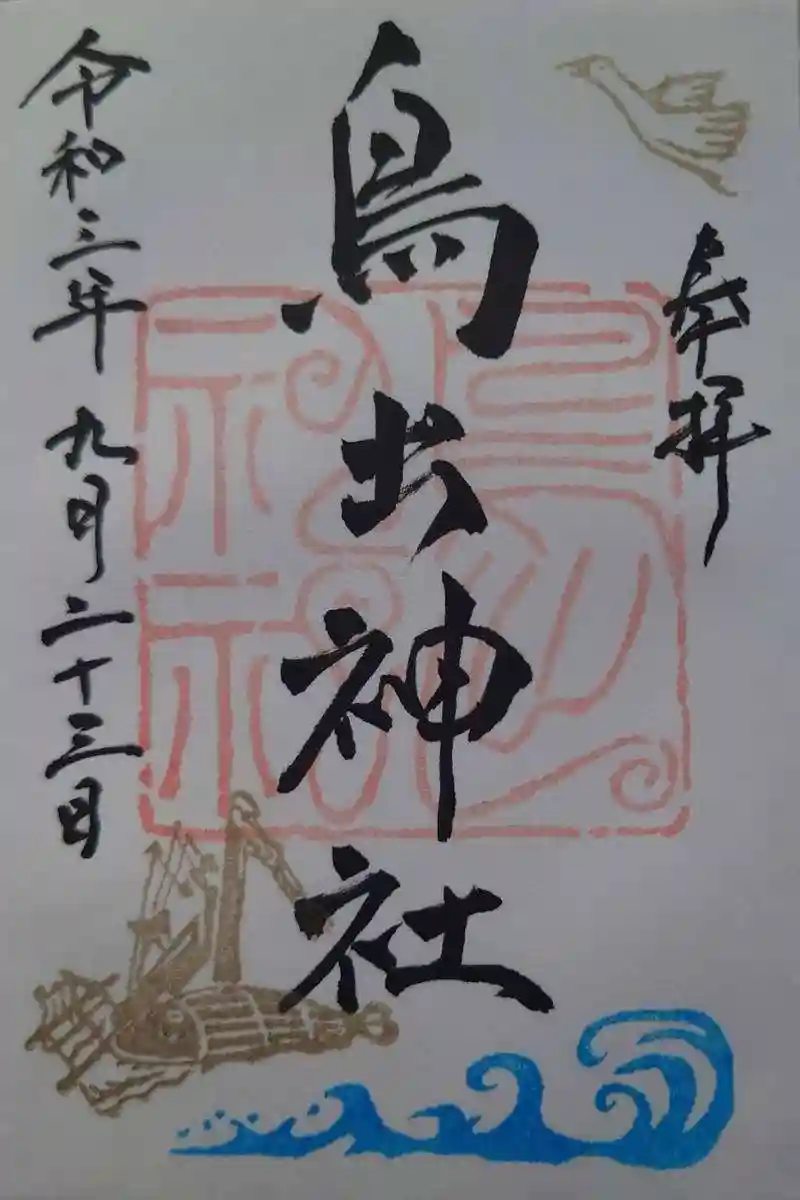 奉拝
鳥出神社
令和三年九月二十三日